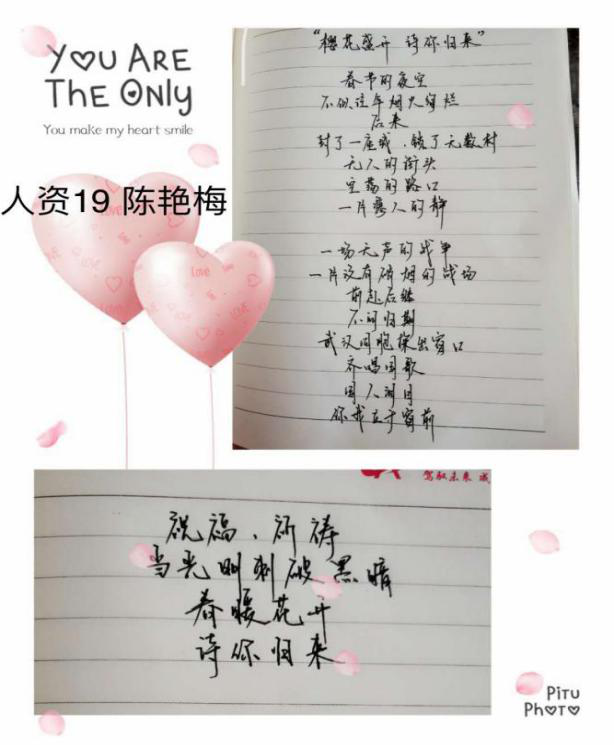 YOU ARE
THE ONLY
You make my heart smile
人资19 陈艳梅
“樱花盛开 待你归来”
春节的夜空
不似往年烟火绚烂
后来
封了一座城，锁了无数村
无人的街头
空荡的路口
一片瘆人的静
一场无声的战争
一片没有硝烟的战场
前赴后继
不问归期
武汉同胞探出窗口
齐唱国歌
国人同日
你我立于窗前
祝福、祈祷
当光明刺破黑暗
春暖花开
待你归来
驾驭未来 成
PiTU
PhOTO